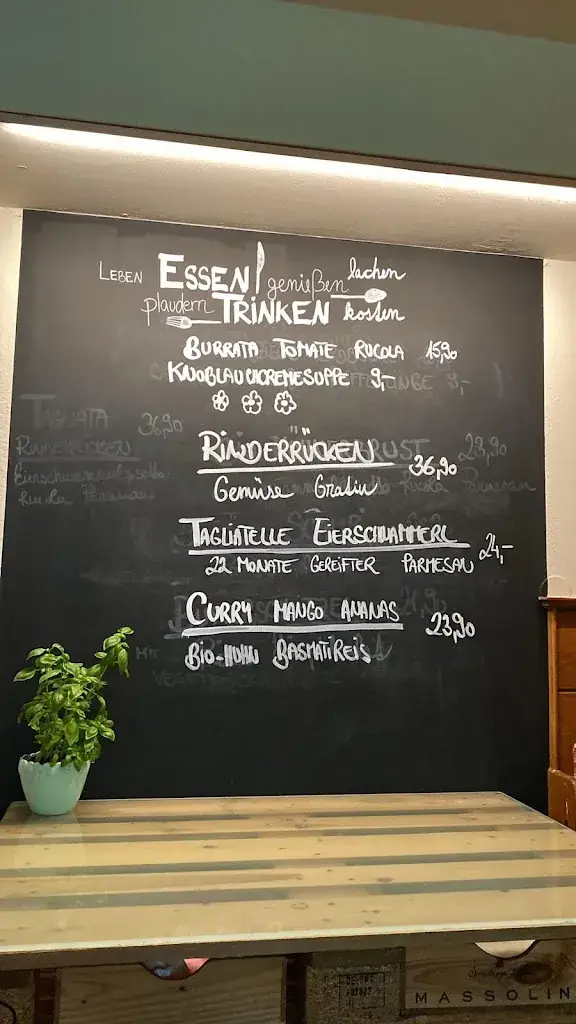 LEBEN ESSEN genießen lachen
plaudern TRINKEN kosten
BURRATA TOMATE RUCOLA 15,90
KNOBLAUCHCREMESUPPE 9,-
RINDERRÜCKEN 36,90
Gemüse Gratin
TAGLIATELLE EIERSCHWAMMERL 24,-
22 MONATE GEREIFTER PARMESAN
CURRY MANGO ANANAS 23,90
BIO-HUHN BASMATIREIS
TAGLIATA 36,90
RINDERRÜCKEN
Rucola Parmesan
23,90
MASSOLIN